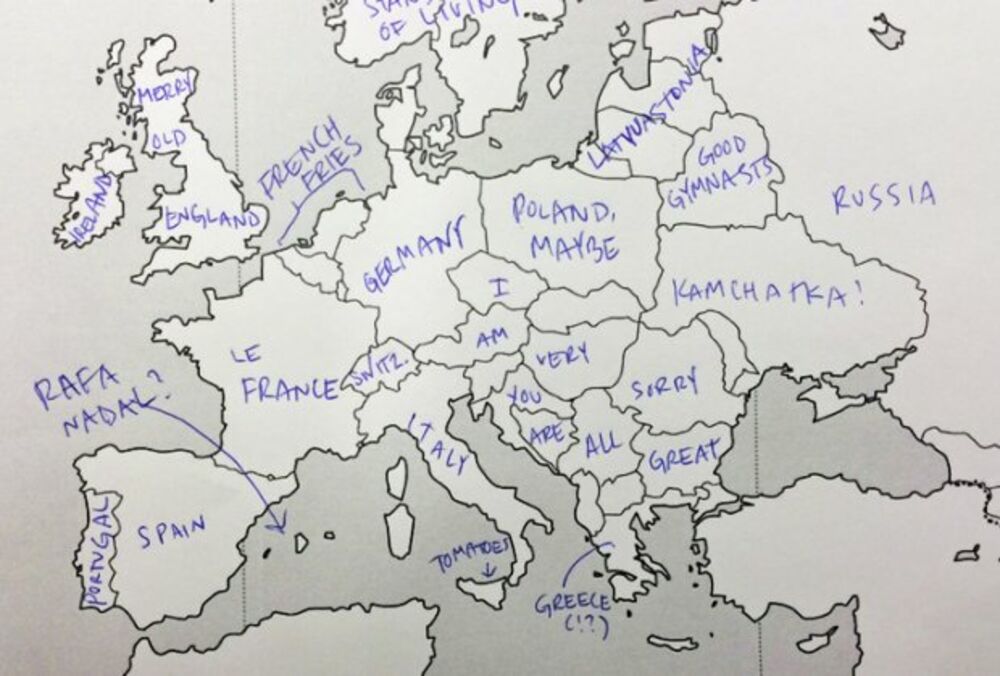 STAN
OF LIVING
MERRY
OLD
ENGLAND
IRELAND
FRENCH
FRIES
LATVUASTONIA
GOOD
GYMNASTS
RUSSIA
GERMANY
POLAND,
MAYBE
KAMCHATKA!
I
AM
VERY
SORRY
LE
FRANCE
SWITZ.
YOU
ARE
ALL
GREAT
RAFA
NADAL?
ITALY
PORTUGAL
SPAIN
TOMATOES
GREECE
(!?)